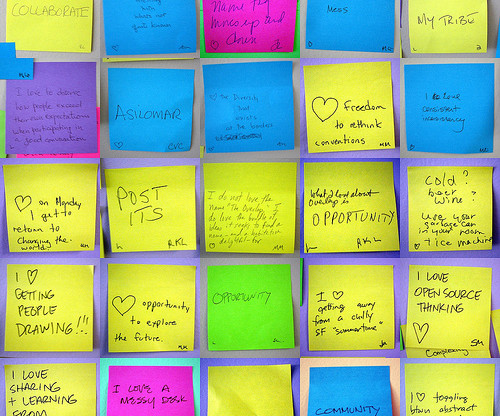 COLLABORATE
Name Tag
Lineup and
Down
Mess
MY TRIBE
I love to observe
how people exceed
their own expectations
when participating in
a great convention
ASILOMAR
CVC
the diversity
that
exists
at the borders
♡ freedom
to rethink
conventions
I love
consistent
inconsistency
♡ on Monday
I get to
return to
changing the
world!
POST
ITS
RKL
I do not love the
name "The Overlap". I
do love the bundle of
ideas it reps, to find a
name - and a
delightful - for
MM
What I love about
Overlap is
OPPORTUNITY
RKL
COLD?
beer?
wine?
use your
garbage can
in your room
+ ice machine
I ♡
GETTING
PEOPLE
DRAWING!!!
♡ opportunity
to explore
the future.
OPPORTUNITY
I ♡
getting away
from a chilly
SF "summertime"
I LOVE
OPEN SOURCE
THINKING
SM
Complexity
I LOVE
SHARING
+ LEARNING
FROM
I LOVE A
MESSY DESK
COMMUNITY
I ♡ toggling
btwn abstract